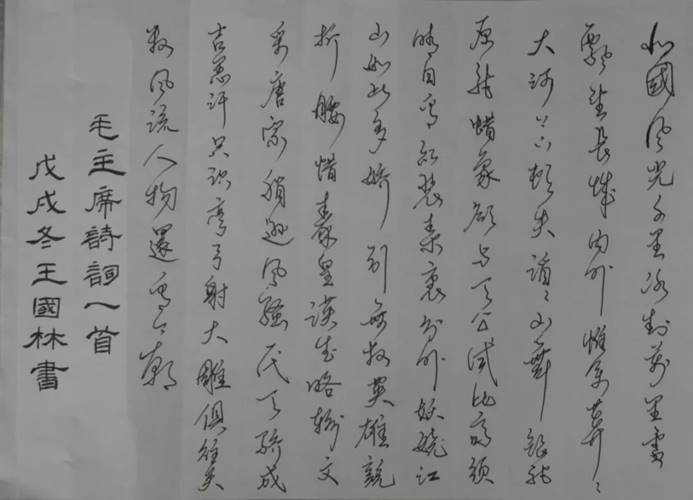 北國風光千里冰封萬里雪
飄望長城内外惟余莽〻
大河上下頓失滔〻山舞銀蛇
原馳蜡象欲与天公試比高須
晴日看紅裝素裹分外妖嬈江
山如此多嬌引無数英雄競
折腰惜秦皇漢武略輸文
采唐宗稍遜風騷一代天驕成
吉思汗只識彎弓射大雕俱往矣
数風流人物還看今朝
毛主席詩詞一首
戊戌冬王國林書